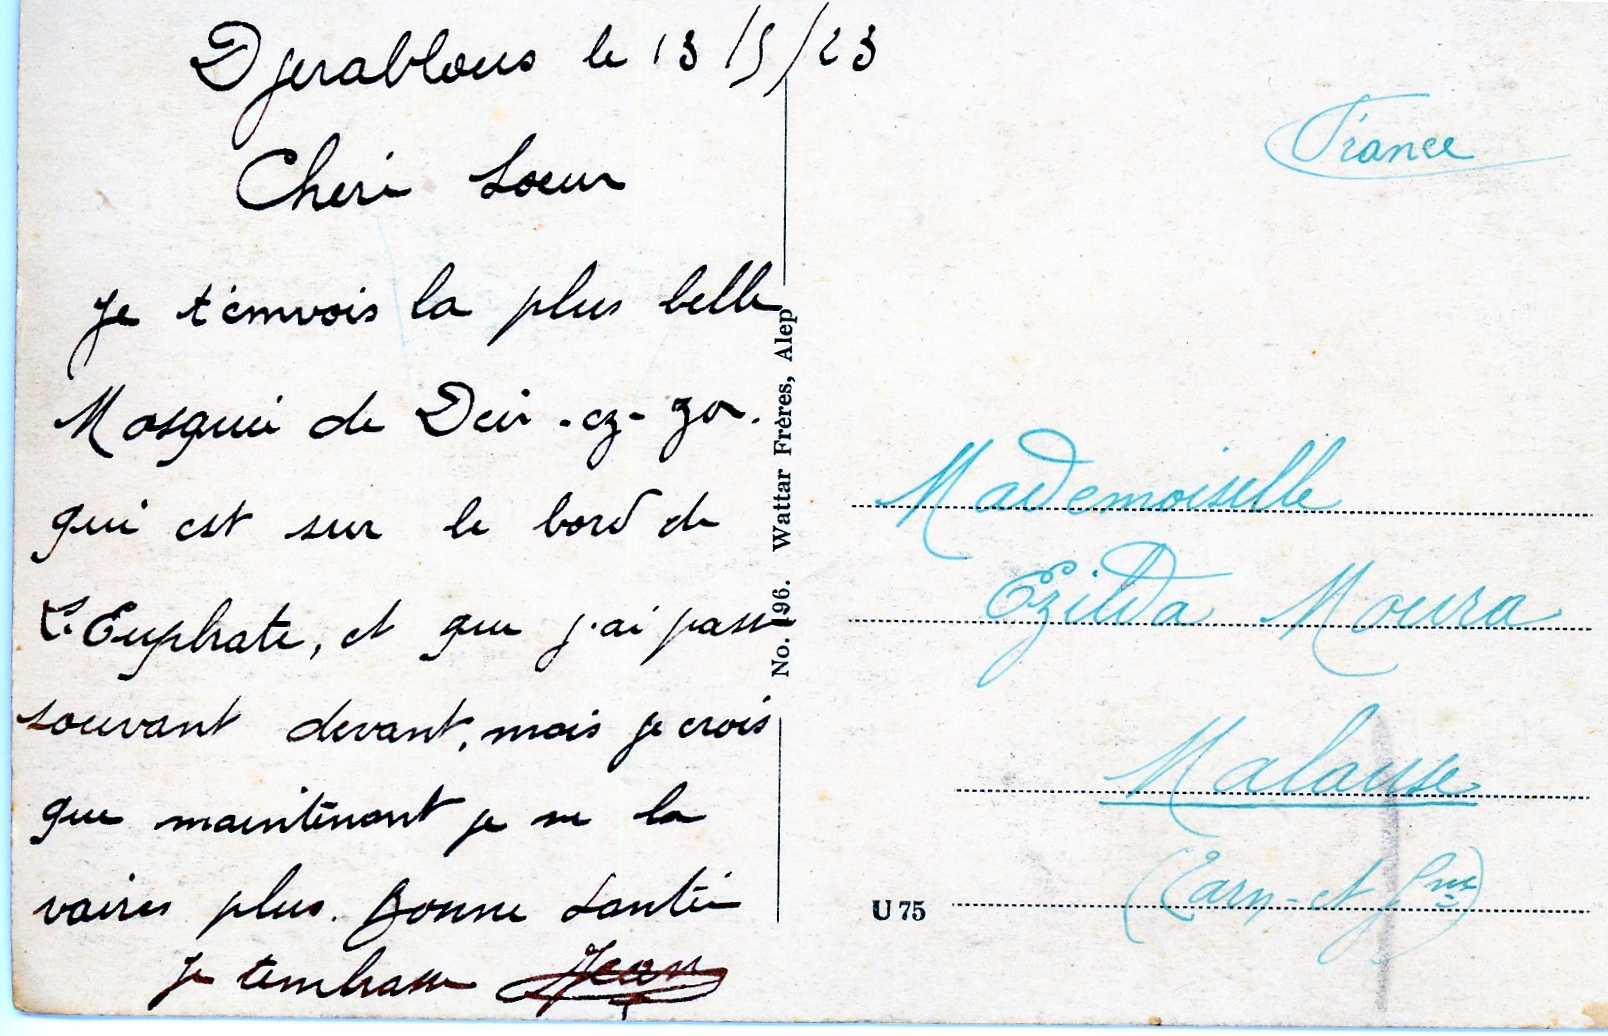 Djerablous le 13/5/23
Cheri Soeur
Je t'emvois la plus belle
Mosquéé de Deir-ez-Zor.
qui est sur le bord de
L'Euphrate, et que j'ai passé
souvant devant, mais je crois
que maintenant je ne la
vairés plus. Bonne Santéé
Je tembrasse Jean
No. 196. Wattar Frères, Alep
France
Mademoiselle
Ezilda Moura
Malause
(Tarn-et Gne)
U 75